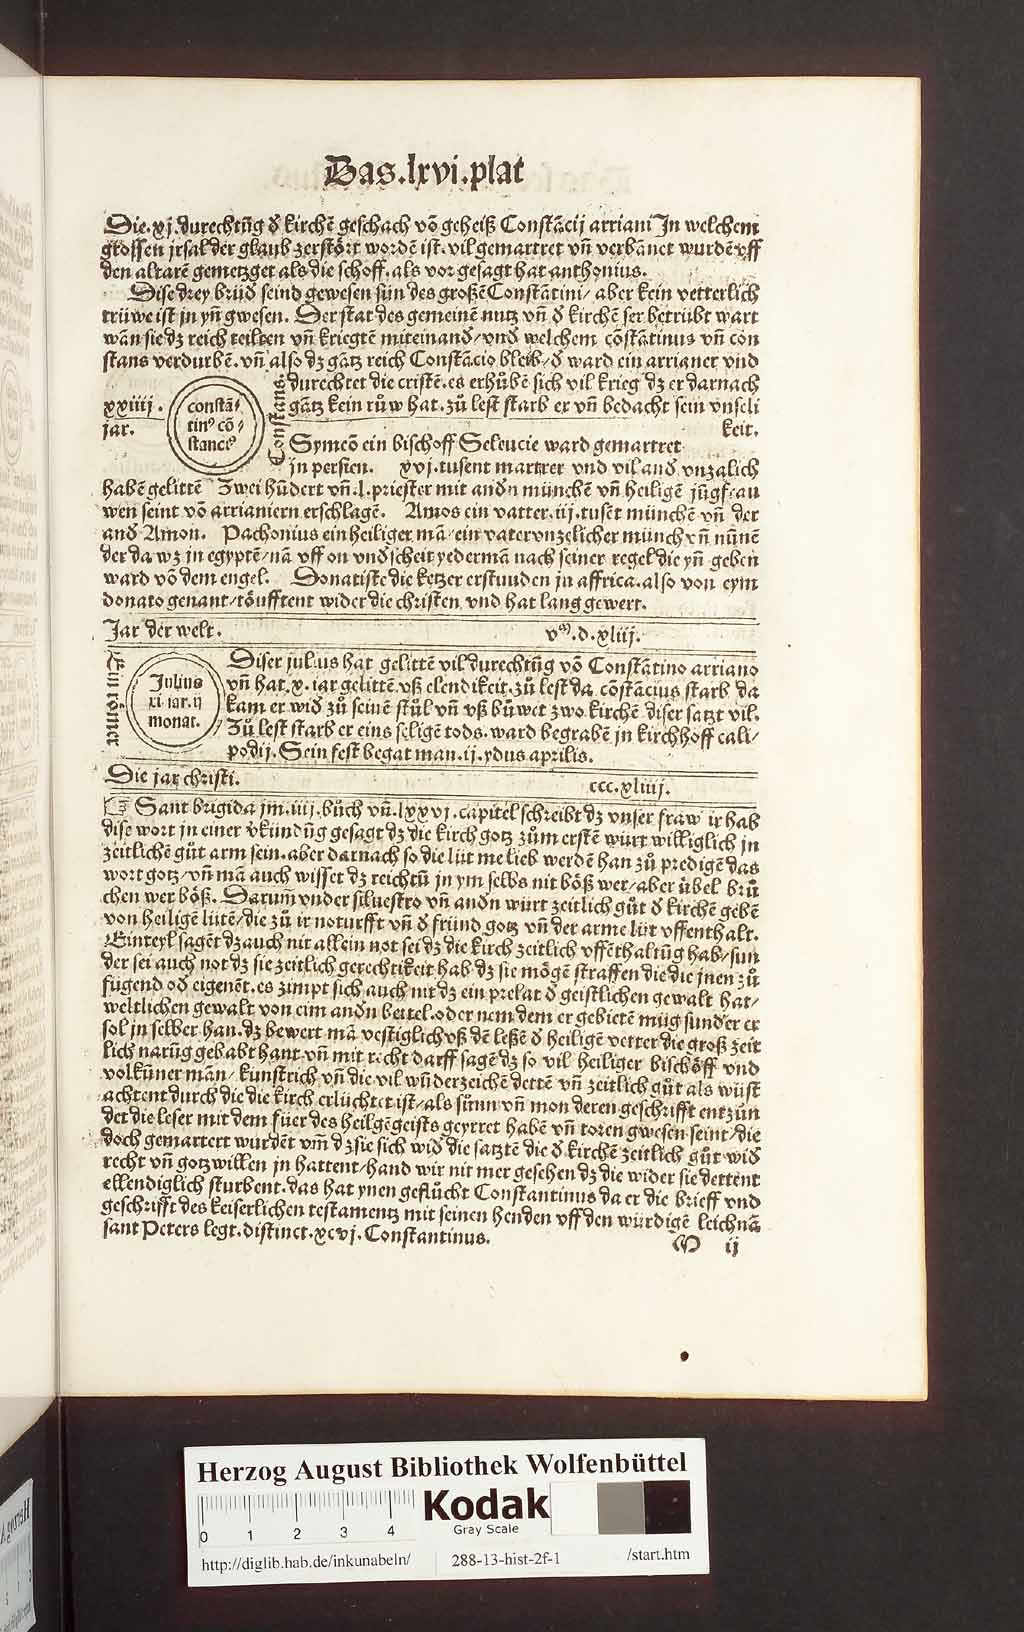 Das.lxvi.plat
Die.xj.durechtūg đ kirchē geschach vō geheiß Constācij arriani Jn welchem
grossen jrsal der glaub zerstört wordē ist.vil gemartret vñ verbānet wurdē vff
den altarē gemetzget als die schoff.als vor gesagt hat anthonius.
Dise drey brüđ seind gewesen sün des großē Constātini/ aber kein vetterlich
trüwe ist jn yñ gwesen. Der stat des gemeinē nutz vñ đ kirchē ser betrübt wart
wān sie dz reich teilten vñ kriegtē miteinanđ/vnđ welchem cōstātinus vñ con
stans verdurbē.vñ also dz gātz reich Constācio bleib/đ ward ein arrianer vnd
durechtet die cristē.es erhůbē sich vil krieg dz er darnach
gātz kein růw hat.zů lest starb er vñ bedacht sein vnseli
keit.
xxiiij.
jar.
constā/
tin⁹ cō/
stanc⁹
Constans
Symeō ein bischoff Seleucie ward gemartret
jn persien. xvj.tusent martrer vnd vil anđ vnzalich
habē gelittē Zwei hūdert vñ.l.priester mit andn münchē vñ heiligē jūgfrau
wen seint vō arrianiern erschlagē. Amos ein vatter.iij.tusēt münchē vñ der
anđ Amon. Pachonius ein heiliger mā/ein vater vnzelicher münch vñ nūnē
der da wz in egyptē/nā vff on vnđscheit yedermā nach seiner regel die yñ geben
ward vō dem engel. Donatiste die ketzer erstunden jn affrica.also von eym
donato genant/töufftent wider die christen vnd hat lang gewert.
Jar der welt. vᵐ.d.xliij.
Ein römer
Julius
xi iar.ij
monat.
Diser julius hat gelittē vil durechtūg vō Constātino arriano
vñ hat.x.iar gelittē vß elendikeit.zů lest da cōstācius starb da
kam er wiđ zů seinē stůl vñ vß büwet zwo kirchē diser satzt vil.
Zů lest starb er eins seligē tods.ward begrabē jn kirchhoff cali/
podij.Sein fest begat man.ij.ydus aprilis.
Die jar christi. ccc.xliiij.
Sant brigida jm.iiij.bůch vñ.lxxvj.capitel schreibt dz vnser fraw ir hab
dise wort jn einer vkündūg gesagt dz die kirch gotz zům erstē wurt williglich jn
zeitlichē gůt arm sein.aber darnach so die lüt me lieb werdē han zů predigē das
wort gotz/vñ mā auch wisset dz reichtū jn ym selbs nit böß wer/aber übel brů
chen wer böß. Darum̄ vnder siluestro vñ andn wurt zeitlich gůt đ kirchē gebē
von heiligē lütē/die zů ir noturfft vñ đ fründ gotz vñ der arme lüt vffenthalt.
Einteyl sagēt dz auch nit allein not sei dz die kirch zeitlich vffēthaltūg hab/sun
der sei auch not dz sie zeitlich gerechtikeit hab dz sie mögē straffen die die jnen zů
fügend ođ eigenēt.es zimpt sich auch nit dz ein prelat đ geistlichen gewalt hat/
weltlichen gewalt von eim andn bettel.oder nem dem er gebietē mūg sunder er
sol jn selber han.dz bewert mā vestiglich vß dē leßē đ heiligē vetter die groß zeit
lich narūg gehabt hant.vñ mit recht darff sagē dz so vil heiliger bischöff vnd
volkūner män/ kunstrich vñ die vil wūderzeichē dettē vñ zeitlich gůt als wüst
achtent durch die die kirch erlüchtet ist/als sūnn vñ mon deren geschrifft entzün
det die leser mit dem füer des heilgēgeists geyrret habē vñ toren gwesen seint/die
doch gemartert wurdēt vm̄ dz sie sich wiđ die satztē die đ kirchē zeitlich gůt wiđ
recht vñ gotzwillen jn hattent/hand wir nit mer gesehen dz die wider sie dettent
ellendiglich sturbent.das hat ynen geflůcht Constantinus da er die brieff vnd
geschrifft des keiserlichen testamentz mit seinen henden vff den würdigē leichnā
sant Peters legt.distinct.xcvj.Constantinus.
M ij
Herzog August Bibliothek Wolfenbüttel
0 1 2 3 4
Kodak
Gray Scale
http://diglib.hab.de/inkunabeln/ 288-13-hist-2f-1 /start.htm